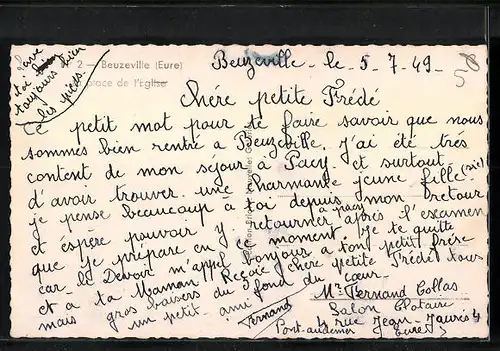 lave
toi bien
toujours bien
les pieds.
2 – Beuzeville (Eure)
place de l'Eglise
Beuzeville. le 5-7-49
Chére petite Frédé
Ce petit mot pour te faire savoir que nous
sommes bien rentré a Beuzeville. j'ai été très
content de mon séjour à Pacy et surtout
d'avoir trouver une charmante jeune fille (sic)
je pense beaucoup a toi depuis mon retour
et espère pouvoir retourner à Pacy après l'examen
que je prépare en ce moment. Je te quitte
car le Devoir m'appel bonjour a ton petit frère
et a ta Maman Reçoie chère petite Frédé tous
mais gros baisers du fond du cœur.
un petit ami
Fernand
Mr Fernand Collas
Salon Clotaire
4 rue Jean-Jaurès 4
Pont-audemer (Eure)